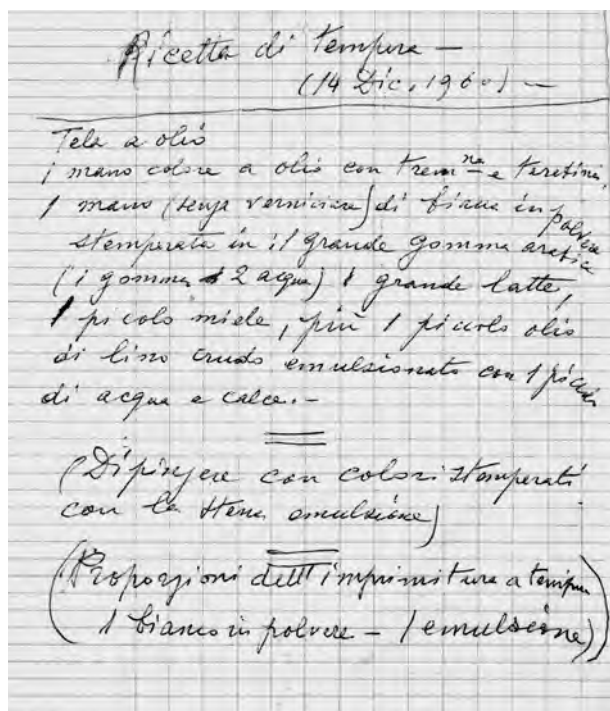 Ricetta di tempera —
(14 Dic. 1960) —
Tela a olio
1 mano colore a olio con trem<sup>na</sup> e
1 mano (senza verniciare) di bianco in polvere
stemperata in 1 grande gomma arabica
(1 gomma 2 acqua) 1 grande latte,
1 piccolo miele, più 1 piccolo olio
di lino crudo emulsionato con 1 piccolo
di acqua e calce. –
(Dipingere con colori stemperati
con la stessa emulsione)
(Proporzioni dell'imprimitura a tempera
1 bianco in polvere – 1 emulsione)